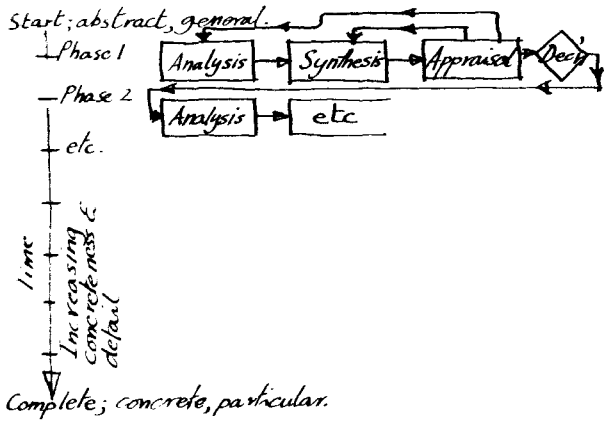 Start; abstract, general.
Phase 1
Analysis
Synthesis
Appraisal
Dec'n
Phase 2
Analysis
etc
etc.
Time
Increasing
concreteness &
detail
Complete; concrete, particular.